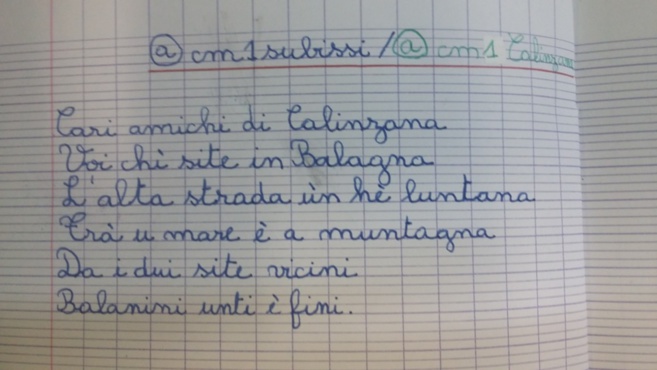 @ cm1subissi / @ cm1 Calinzana
Cari amichi di Calinzana
Voi chì site in Balagna
L'alta strada ùn hè luntana
Trà u mare è a muntagna
Da i dui site vicini
Balanini unti è fini.